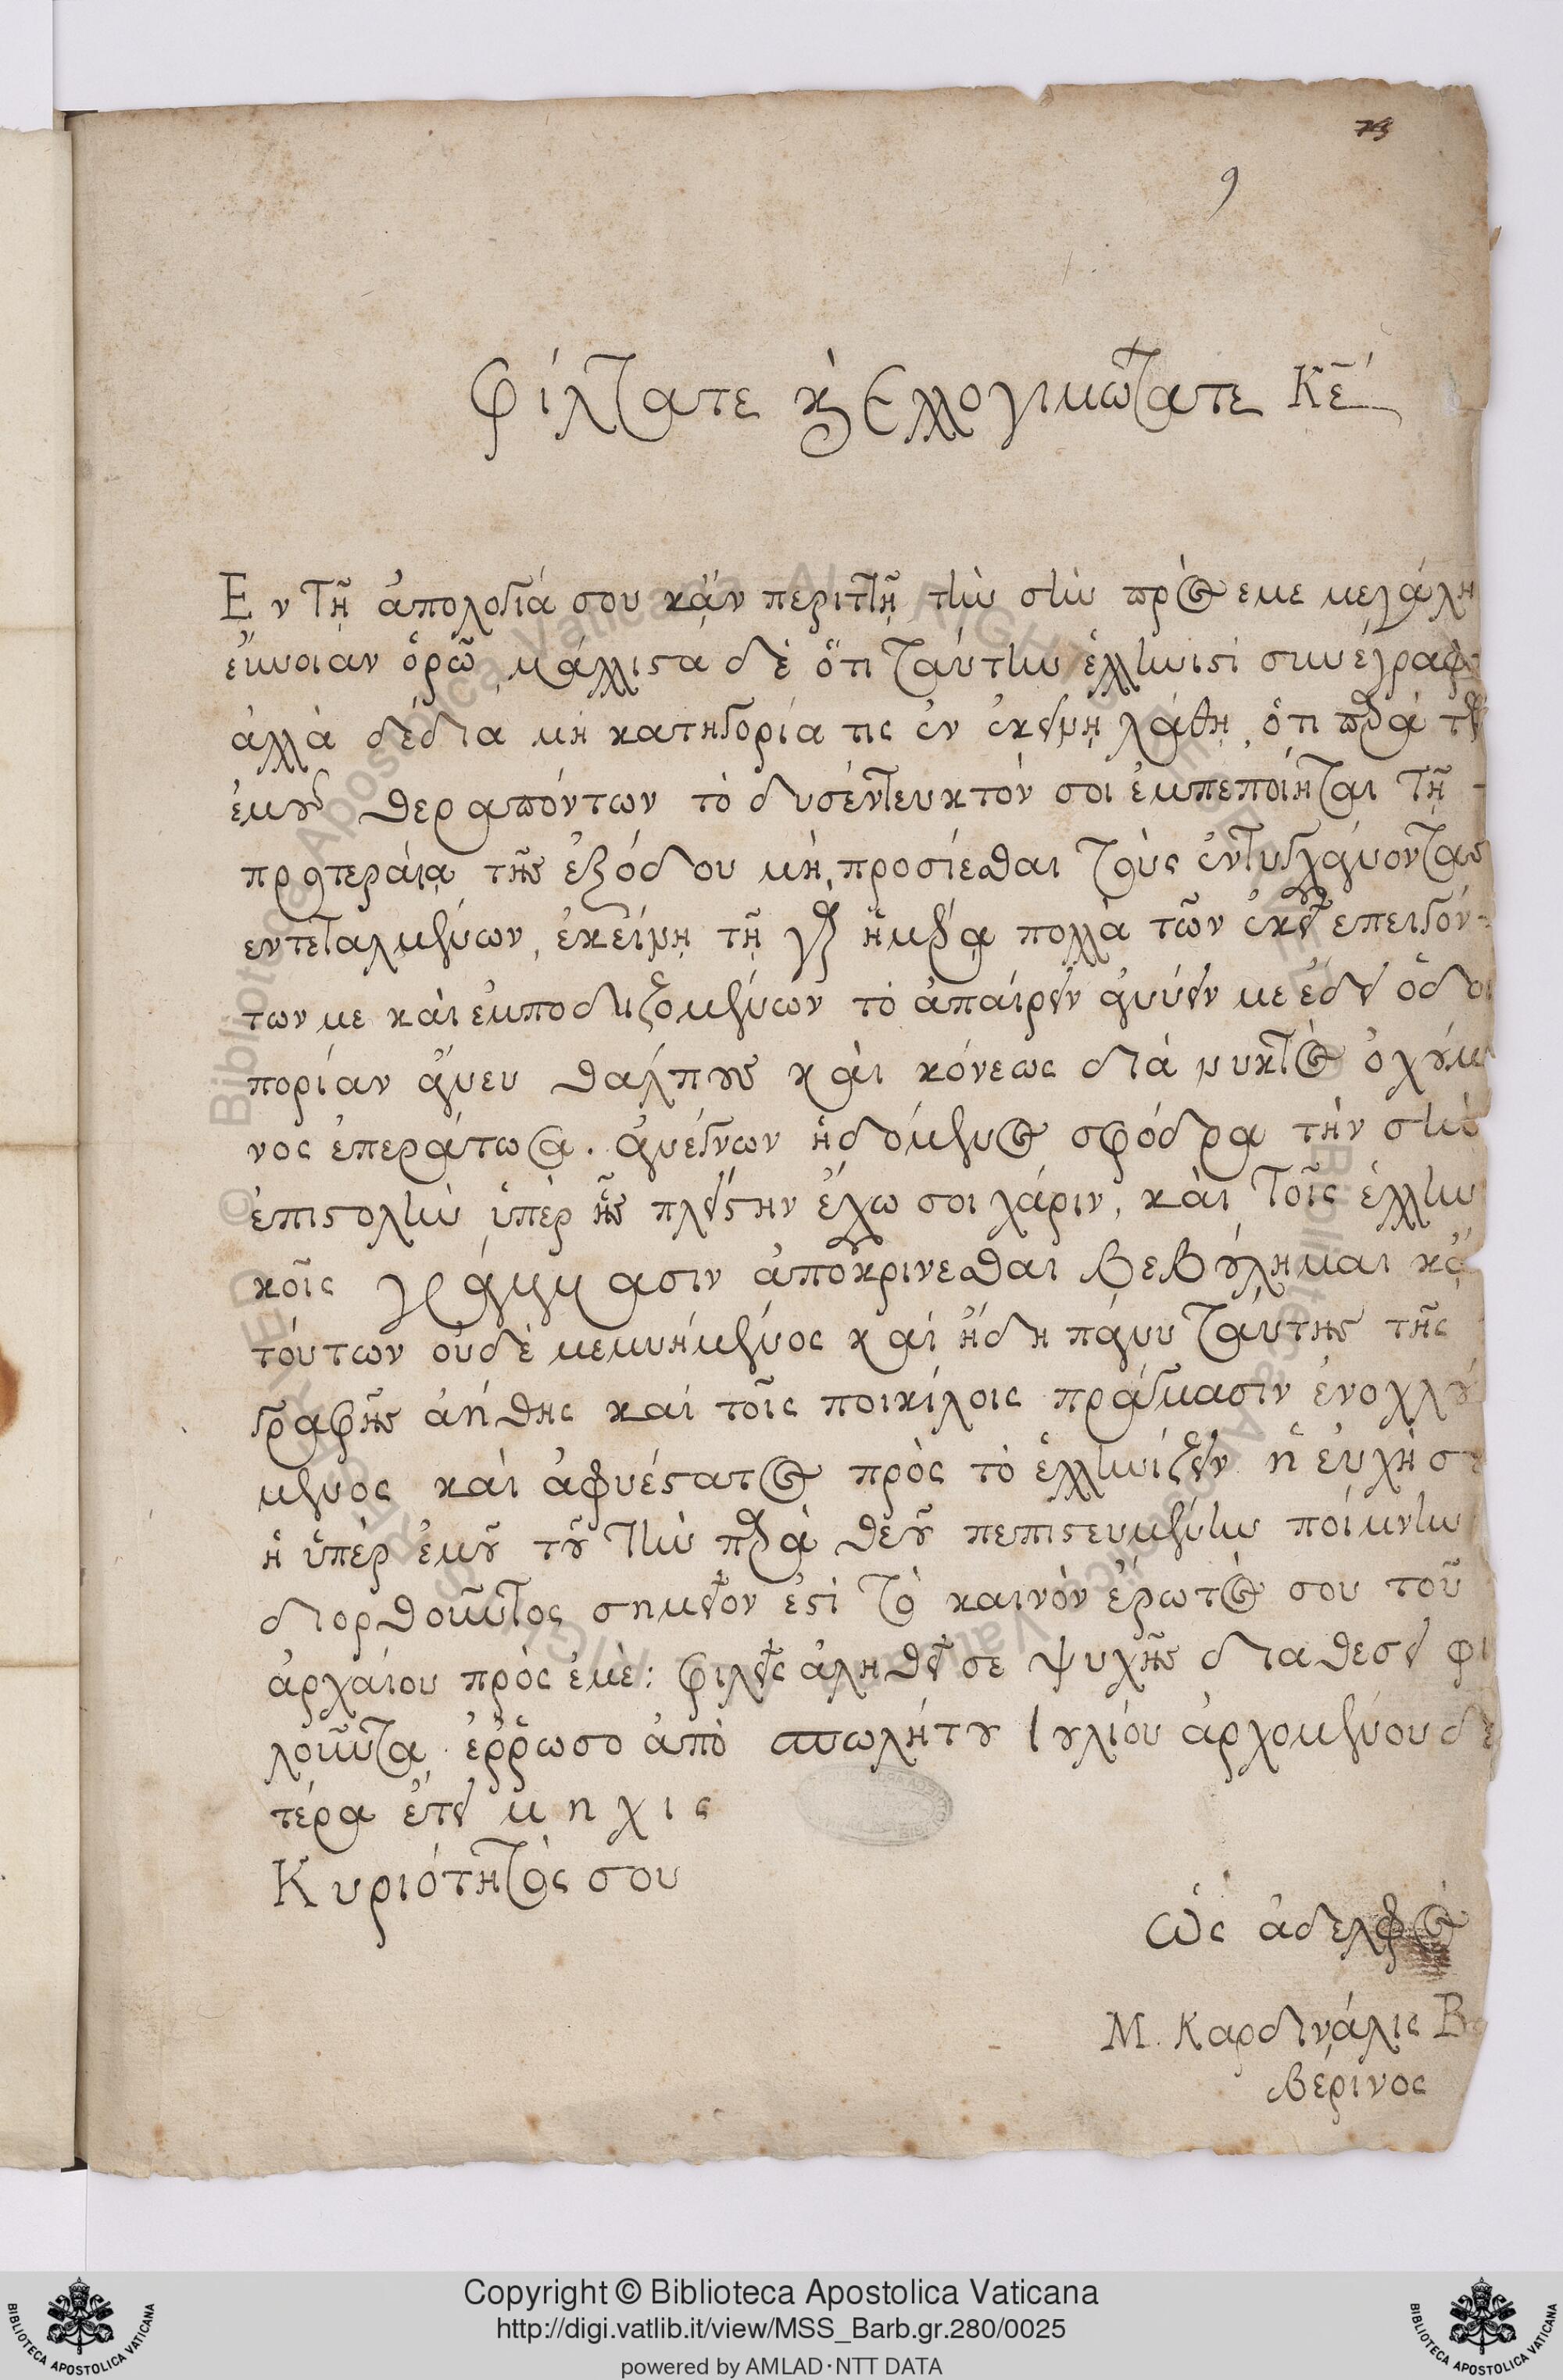 73
9
Φίλτατε κ̀ Ελλογιμώτατε Κε
Εν τῇ ἀπολογία σου κᾂν περιττῇ τὴν σὴν πρὸς εμε μεγάλη
εὔνοιαν ὁρῶ, μάλλιστα δὲ ὅτι ταύτην ἑλληνιστὶ συνέγραφ
ἀλλὰ δέδια μὴ κατηγορία τις ἐν ἐκείνῃ λάθῃ, ὅτι παρὰ τῶν
ἐμοῦ θεραπόντων τὸ δυσέντευκτόν σοι ἐμπεποίηται τῇ
προτεραίᾳ τῆς ἐξόδου μὴ προσίεσθαι τοὺς ἐντυγχάνοντας
εντεταλμένων, ἐκείνῃ τῇ γὰρ ἡμέρᾳ πολλὰ τῶν ἐκεῖ επειγόν-
των με καὶ εμποδιζομένων τὸ ἀπαίρειν ἀνύειν με ἔδει ὁδοι
πορίαν ἄνευ θάλπους καὶ κόνεως διὰ νυκτὸς ὀχούμε
νος ἐπεράτωσα. ἀνέγνων ἡδόμενος σφόδρα τὴν σὴν
ἐπιστολὴν ὑπὲρ ἧς πλείστην ἔχω σοι χάριν, καὶ τοῖς ἑλλην
κοῖς γράμμασιν ἀποκρίνεσθαι βεβούλημαι κἂ
τούτων οὐδὲ μεμνήμένος καὶ ἤδη πάνυ ταύτης τῆς
γραφῆς ἀήθης καὶ τοῖς ποικίλοις πράγμασιν ἐνοχλού
μενος καὶ ἀφυέστατος πρὸς τὸ ἑλληνίζειν ἡ εὐχὴ σ
ἡ ὑπὲρ ἐμοῦ τοῦ τὴν παρὰ θεοῦ πεπιστευμένην ποίμνην
διορθοῦντος σημεῖον ἐστὶ τὸ καινὸν ἔρωτος σου τοῦ
ἀρχαίου πρὸς ἐμὲ: φιλεῖς ἀληθεῖ σε ψυχῆς διαθεσει φι
λοῦντα. ἐῤῥωσο ἀπὸ σπωλήτου Ιουλίου ἀρχομένου δε
τέρα ἔτει μ η χ ι ς
Κυριότητος σου
ὡς ἀδελφὸς
Μ. Καρδινάλις Β
βερίνος
Copyright © Biblioteca Apostolica Vaticana
http://digi.vatlib.it/view/MSS_Barb.gr.280/0025
powered by AMLAD·NTT DATA
BIBLIOTECA APOSTOLICA VATICANA
BIBLIOTECA APOSTOLICA VATICANA